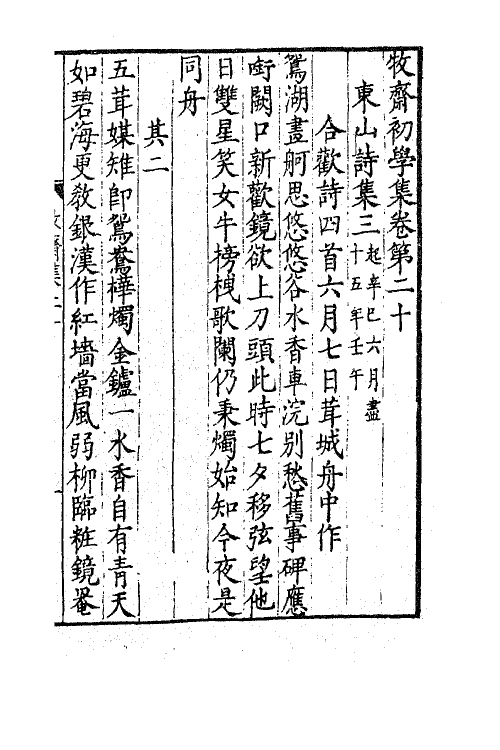 牧齋初學集卷第二十
東山詩集三起辛巳六月盡
十五年壬午
合歡詩四首六月七日茸城舟中作
鴛湖畫舸思悠悠谷水香車浣别愁舊事碑應
銜闕口新歡鏡欲上刀頭此時七夕移弦望他
日雙星笑女牛榜栧歌闌仍秉燭始知今夜是
同舟
其二
五茸媒雉卽鴛鴦樺燭金鑪一水香自有青天
如碧海更教銀漢作紅墻當風弱柳臨粧鏡罨